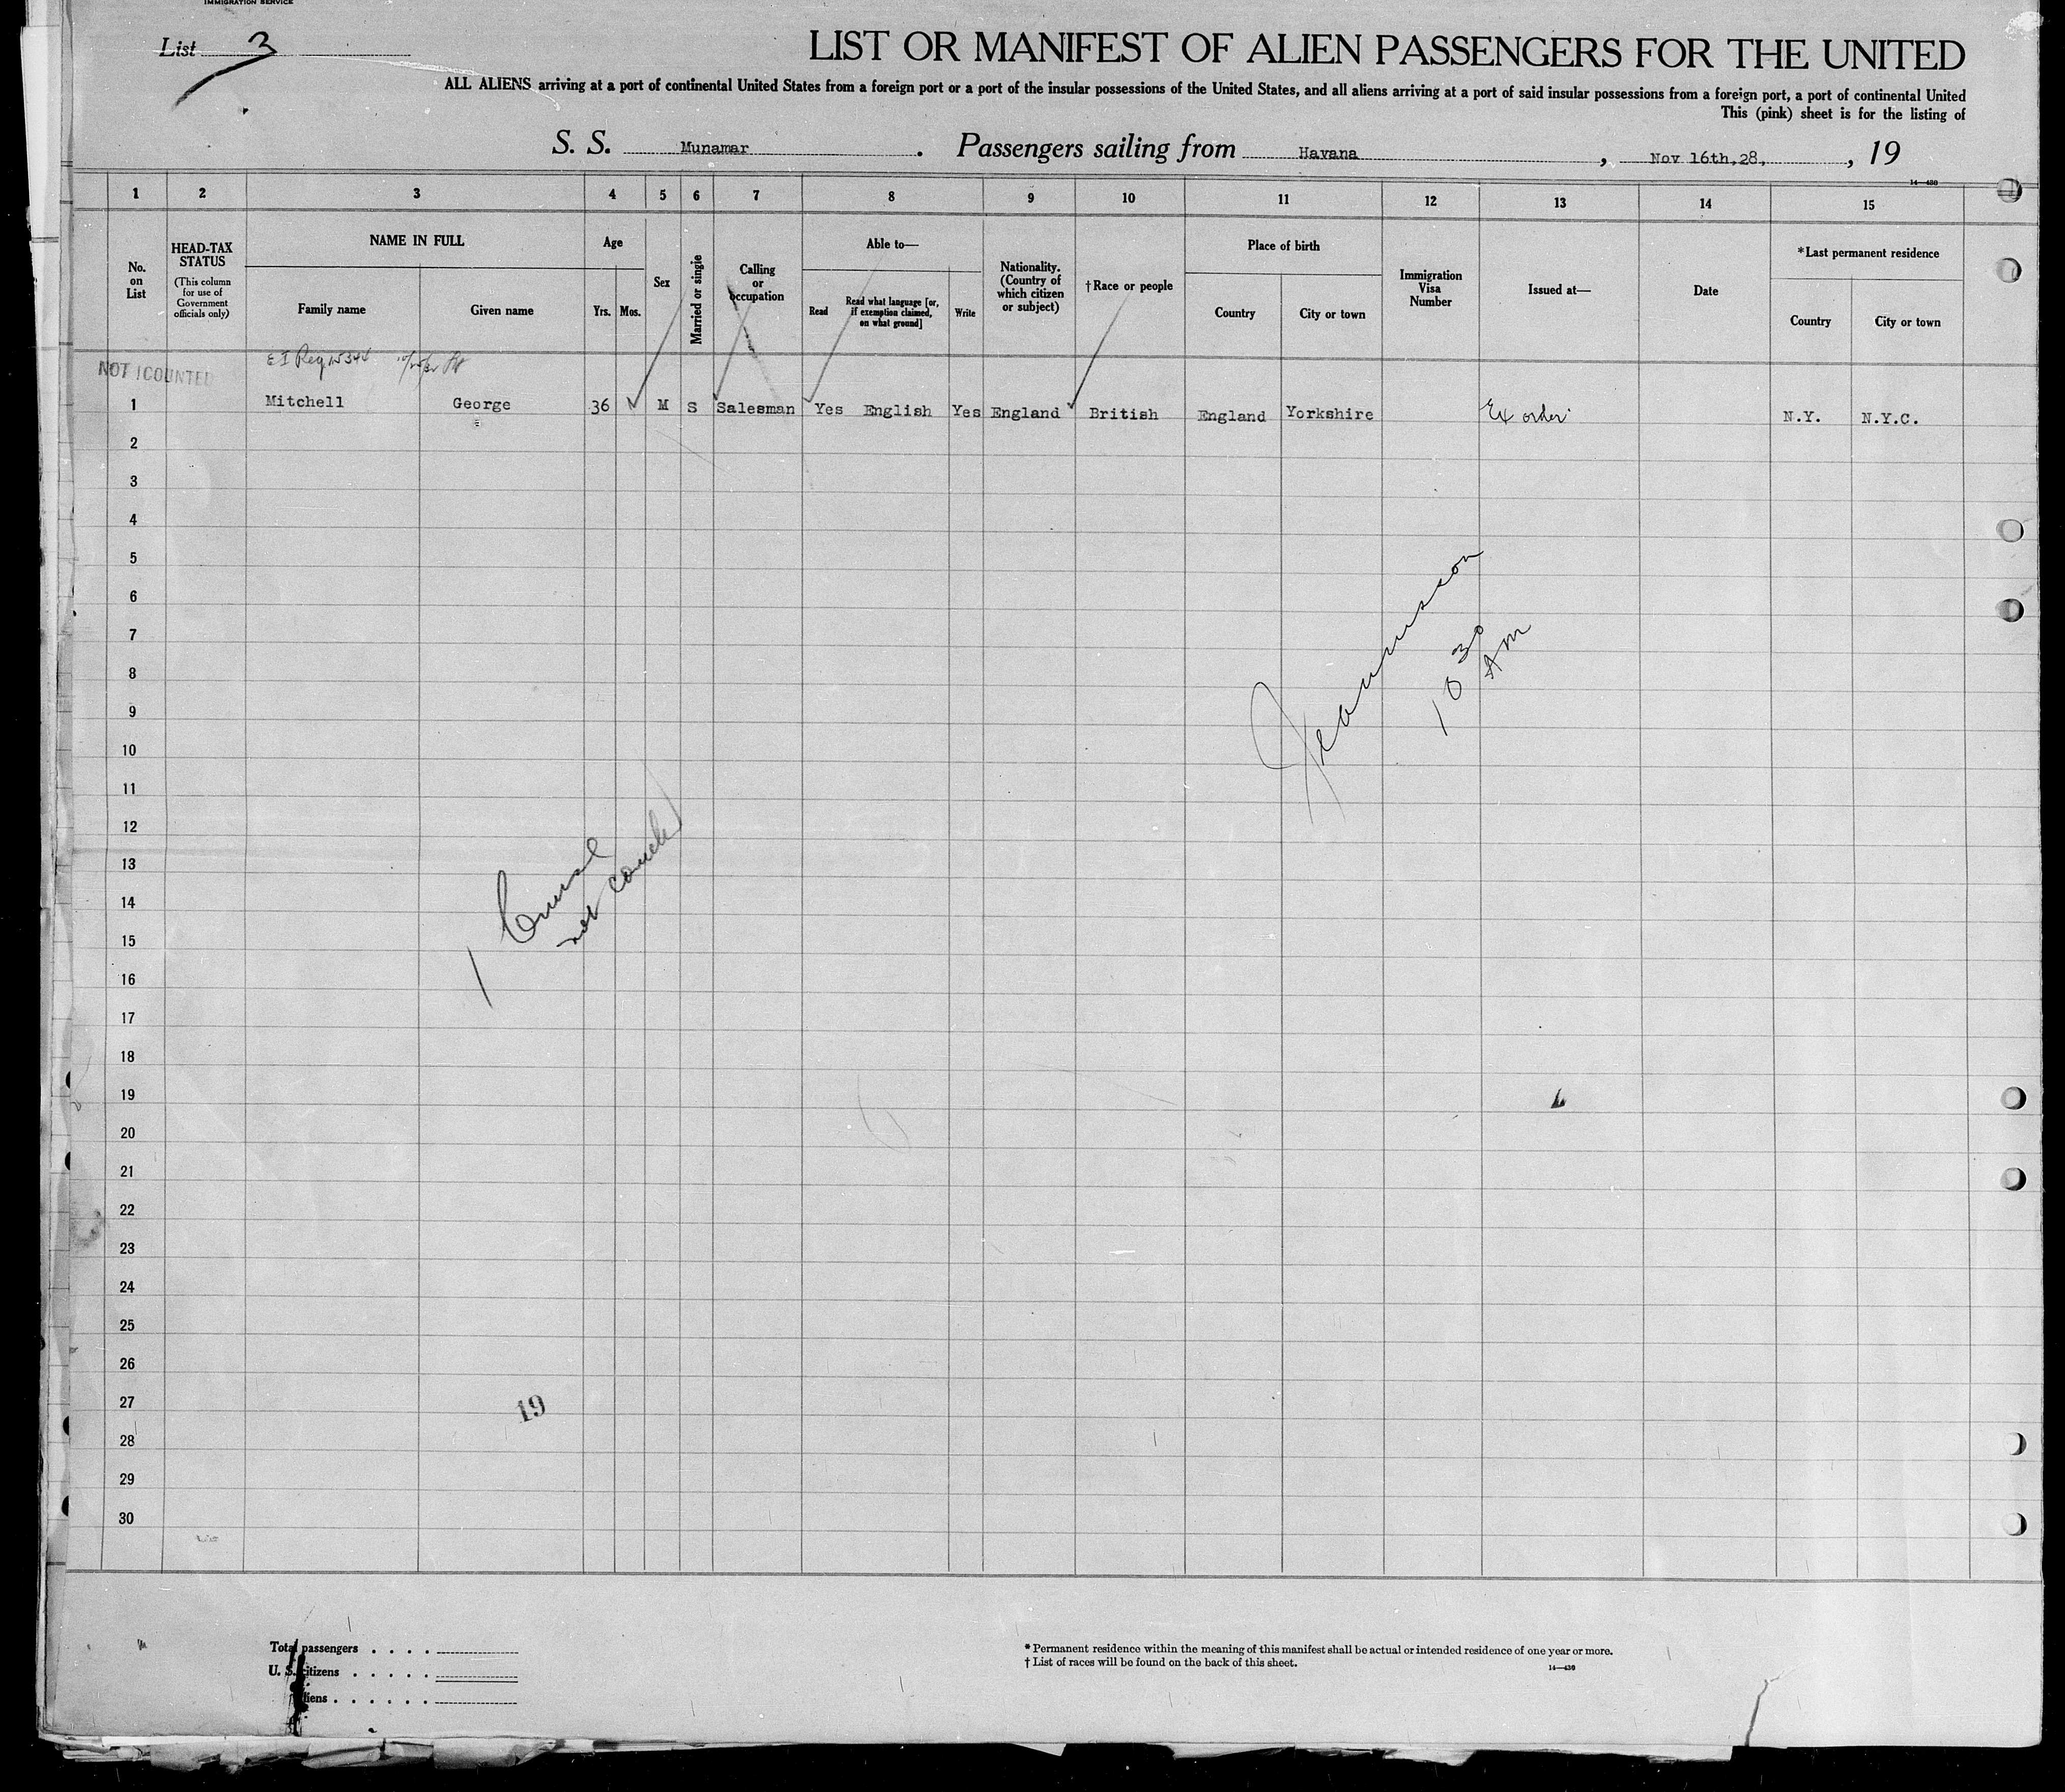 IMMIGRATION SERVICE
List 3
LIST OR MANIFEST OF ALIEN PASSENGERS FOR THE UNITED
ALL ALIENS arriving at a port of continental United States from a foreign port or a port of the insular possessions of the United States, and all aliens arriving at a port of said insular possessions from a foreign port, a port of continental United
This (pink) sheet is for the listing of
S. S. Munamar. Passengers sailing from Havana, Nov 16th,28, , 19
14—430
1 2 3 4 5 6 7 8 9 10 11 12 13 14 15
No. on List
HEAD-TAX STATUS
(This column for use of Government officials only)
NAME IN FULL
Family name
Given name
Age
Yrs.
Mos.
Sex
Married or single
Calling or occupation
Able to—
Read
Read what language [or, if exemption claimed, on what ground]
Write
Nationality. (Country of which citizen or subject)
†Race or people
Place of birth
Country
City or town
Immigration Visa Number
Issued at—
Date
*Last permanent residence
Country
City or town
NOT COUNTED
1 Mitchell George 36 M S Salesman Yes English Yes England British England Yorkshire Ex order N.Y. N.Y.C.
2
3
4
5
6
7
8
9
10
11
12
13
14
15
16
17
18
19
20
21
22
23
24
25
26
27
28
29
30
10 30 AM
1
not
19
Total passengers
U. S. citizens
Aliens
* Permanent residence within the meaning of this manifest shall be actual or intended residence of one year or more.
† List of races will be found on the back of this sheet.
14—430